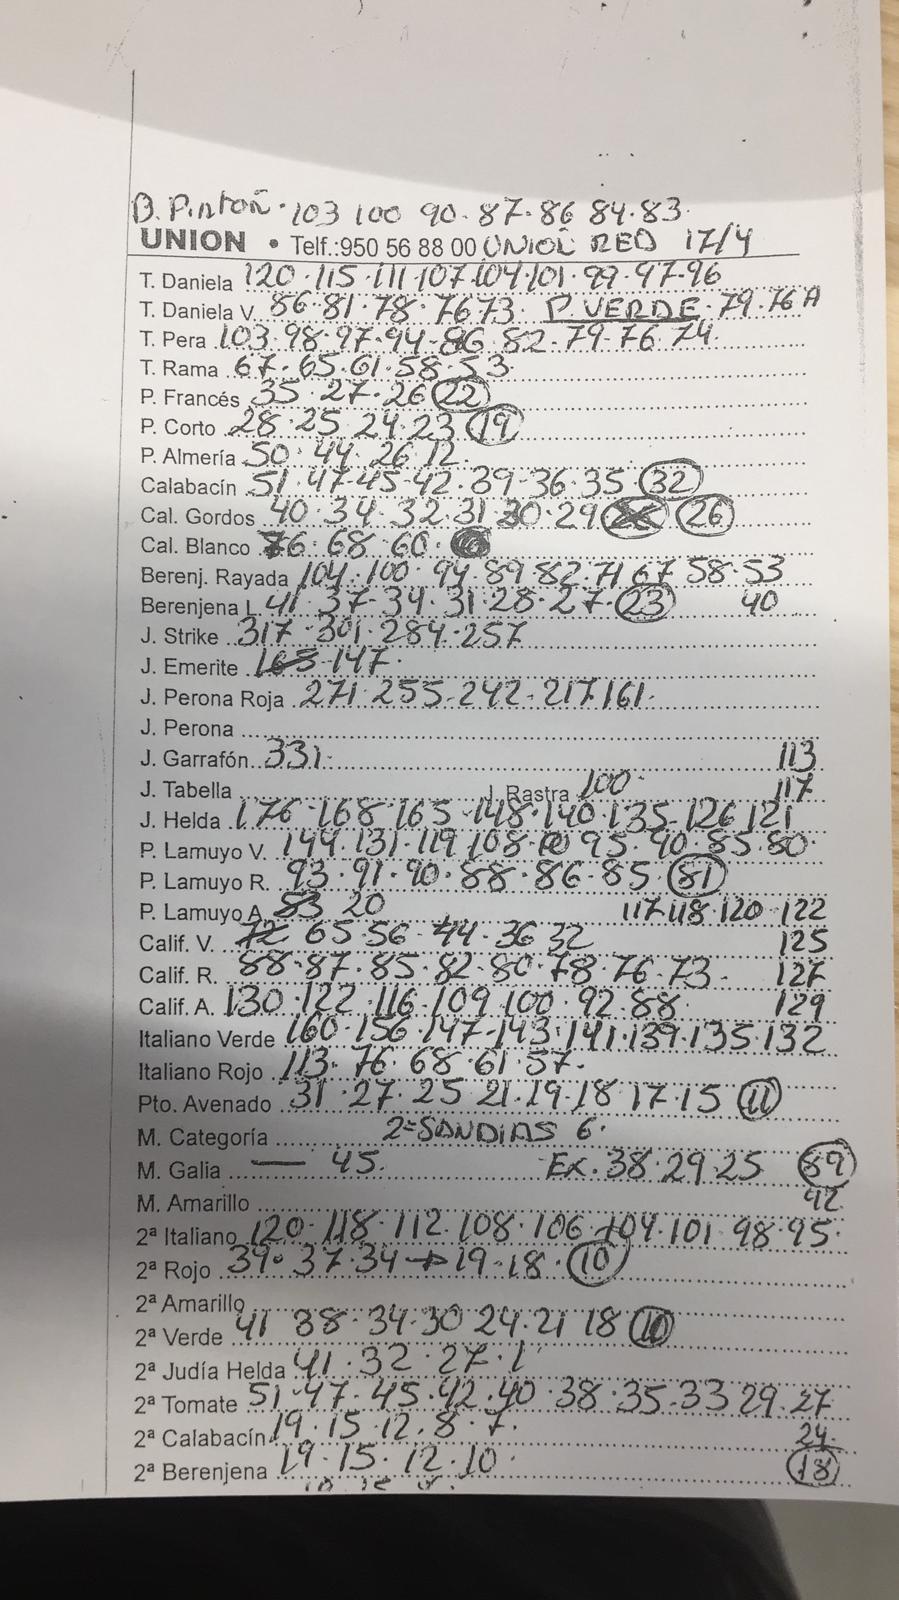 D. Pintoñ · 103 100 90 · 87 · 86 84 · 83
UNION • Telf.:950 56 88 00 UNIOÑ RED 17/4
T. Daniela 120 · 115 · 111 · 107 · 104 · 101 · 99 · 97 · 96
T. Daniela V. 86 · 81 · 78 · 76 73 P. VERDE · 79 · 76 A
T. Pera 103 · 98 · 97 · 94 · 86 · 82 · 79 · 76 · 74
T. Rama 67 · 65 · 61 · 58 · 53
P. Francés 35 · 27 · 26 22
P. Corto 28 · 25 24 · 23 19
P. Almería 50 · 44 · 26 12
Calabacín 51 · 47 · 45 · 42 · 39 · 36 · 35 32
Cal. Gordos 40 · 34 · 32 · 31 · 30 · 29 26
Cal. Blanco 76 · 68 · 60 ·
Berenj. Rayada 104 · 100 · 94 · 89 · 82 · 71 67 58 · 53
Berenjena L. 41 · 37 · 34 · 31 · 28 · 27 · 23 40
J. Strike 317 · 301 · 284 · 257
J. Emerite 165 · 147 ·
J. Perona Roja 271 · 255 · 242 · 217 · 161 ·
J. Perona
J. Garrafón 331 · 113
J. Tabella J. Rastra 100 · 117
J. Helda 176 · 168 · 165 · 148 · 140 · 135 · 126 121
P. Lamuyo V. 144 · 131 · 119 108 · 95 · 90 · 85 · 80 ·
P. Lamuyo R. 93 · 91 · 90 · 88 · 86 · 85 81
P. Lamuyo A. 53 20 117 118 · 120 · 122
Calif. V. 72 65 · 56 · 44 · 36 32 125
Calif. R. 88 · 87 · 85 · 82 · 80 · 78 · 76 · 73 · 127
Calif. A. 130 · 122 · 116 · 109 · 100 · 92 · 88 129
Italiano Verde 160 · 156 · 147 · 143 · 141 · 139 · 135 · 132
Italiano Rojo 113 · 76 · 68 · 61 · 57 ·
Pto. Avenado 31 · 27 · 25 21 · 19 · 18 17 · 15 11
M. Categoría 2ª SANDIAS 6 ·
M. Galia — 45 · Ex. 38 · 29 · 25 59
M. Amarillo 42
2ª Italiano 120 · 118 · 112 · 108 · 106 · 104 · 101 98 · 95 ·
2ª Rojo 39 · 37 · 34 → 19 · 18 · 10
2ª Amarillo
2ª Verde 41 38 · 34 · 30 24 · 21 18 10
2ª Judía Helda 41 · 32 · 27 · 1
2ª Tomate 51 · 47 · 45 · 42 · 40 · 38 · 35 · 33 29 · 27
2ª Calabacín 19 · 15 · 12 · 8 · 7 · 24
2ª Berenjena 19 · 15 · 12 · 10 · 18